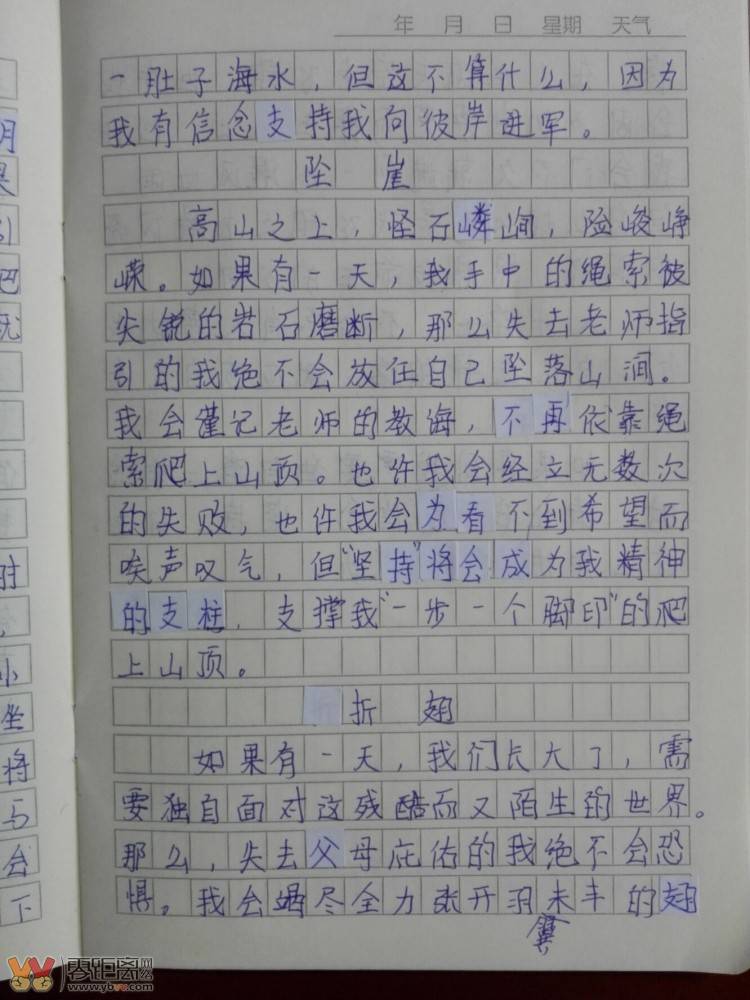 年 月 日 星期 天气
一肚子海水，但这不算什么，因为
我有信念支持我向彼岸进军。
坠 崖
高山之上，怪石嶙峋，险峻峥
嵘。如果有一天，我手中的绳索被
尖锐的岩石磨断，那么失去老师指
引的我绝不会放任自己坠落山涧。
我会谨记老师的教诲，不再依靠绳
索爬上山顶。也许我会经立无数次
的失败，也许我会为看不到希望而
唉声叹气，但"坚持"将会成为我精神
的支柱，支撑我"一步一个脚印"的爬
上山顶。
折 翅
如果有一天，我们长大了，需
要独自面对这残酷而又陌生的世界。
那么，失去父母庇佑的我绝不会恐
惧。我会竭尽全力张开羽翼未丰的翅
月
果
引
吧
就
时
，
小
坐
将
与
会
下
零距离网
www.ybvv.com